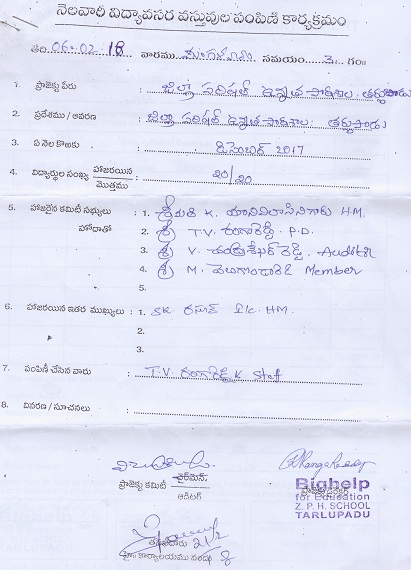 నెలవారీ విద్యావసర వస్తువుల పంపిణి కార్యక్రమం
తేది. 06.02.18 వారము మంగళవారం సమయం 3. గం॥
1. ప్రాజెక్టు పేరు : జిల్లా పరిషత్ ఉన్నత పాఠశాల, తర్లుపాడు
2. ప్రదేశము / ఆవరణ : జిల్లా పరిషత్ ఉన్నత పాఠశాల: తర్లుపాడు
3. ఏ నెల కొఱకు : డిసెంబర్ 2017
4. విద్యార్థుల సంఖ్య హాజరయిన / మొత్తము : 20/20
5. హాజరైన కమిటీ సభ్యులు : 1. శ్రీమతి K. H.M.
హోదాతో 2. శ్రీ T.V. రంగారెడ్డి. P.D.
3. శ్రీ V. రెడ్డి. Auditor
4. శ్రీ M. Member
5.
6. హాజరయిన ఇతర ముఖ్యులు : 1. SK. రసూల్ I/c. HM.
2.
3.
7. పంపిణీ చేసిన వారు : T.V. రంగారెడ్డి K Staff
8. వివరణ / సూచనలు :
ప్రాజెక్టు కమిటీ చైర్‌మెన్.
ఆడిటర్
Bighelp
for Education
Z. P. H. SCHOOL
TARLUPADU